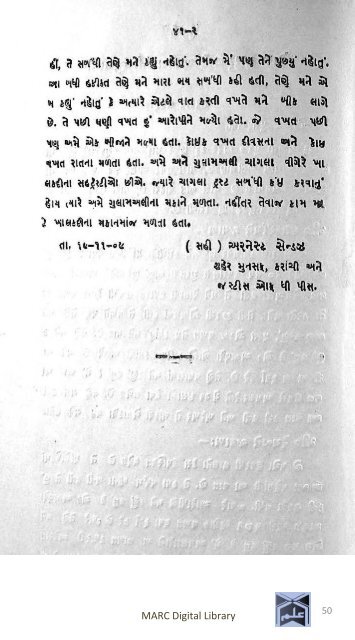 ૪૧-૨
હીં, તે સબંધી તેણે મને કહ્યું નહોતું. તેમજ મેં પણ તેને પુછયું નહોતું.
આ બધી હકીકત તેણે મને મારા ભય સબંધી કહી હતી, તેણે મને એ
મ કહ્યું નહોતું કે અત્યારે એટલે વાત કરતી વખતે મને બીક લાગે
છે. તે પછી ઘણી વખત હું આરોપીને મળ્યો હતો. જે વખત પછી
પણ અમે એક બીજાને મલ્યા હતા. કોઇક વખત દીવસના અને કોઇ
વખત રાતના મળતા હતા. અમે અને ગુલામઅલી ચાગલા વીગેરે ખા
લકદીના સહટ્રસ્ટીઓ છીએ. જ્યારે ચાગલા ટ્રસ્ટ સબંધી કંઇ કરવાનું
હોય ત્યારે અમે ગુલામઅલીના મકાને મળતા. નહીંતર તેવાજ કામ માટ
ે ખાલકદીના મકાનમાંજ મળતા હતા.
તા. ૧૯-૧૧-૦૯ ( સહી ) અરનેસ્ટ સેન્ડઝ
શહેર મુનસફ, કરાંચી અને
જસ્ટીસ ઓફ ધી પીસ.
MARC Digital Library
علم
50